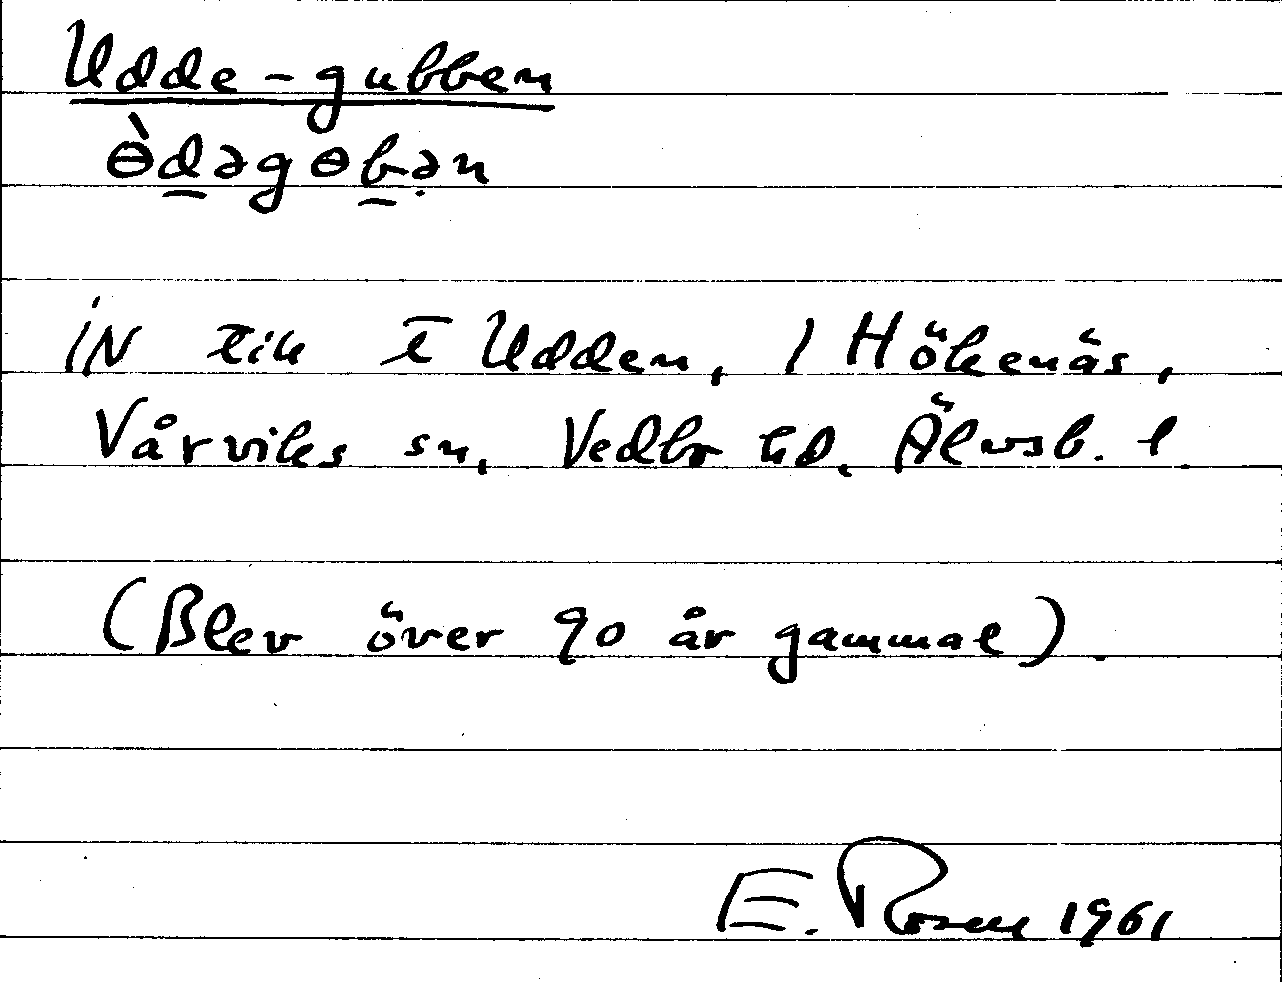 Udde-gubben
ɵ̀d̲əgɵb̲ən
Udden, 1 Hökenäs,
Vårviks sn, Vedbo hd, Älvsb. l.
(Blev över 90 år gammal).
E. Rosen 1961